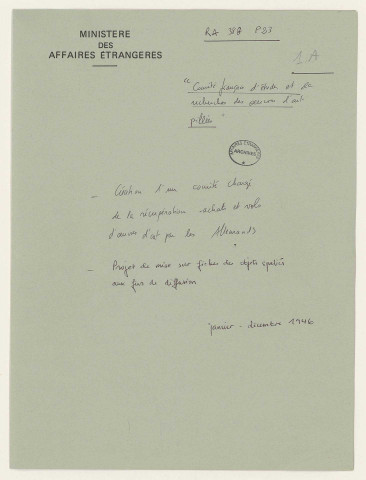 MINISTERE
DES
AFFAIRES ÉTRANGÈRES
RA
1A
"Comité français d'étude et de
recherches des oeuvres d'art
pillées"
ARCHIVES
- Création d'un comité chargé
de la récupération achats et vols
d'œuvres d'art par les Allemands
- Projet de mise sur fiches des objets spoliés
aux fins de diffusion
janvier - décembre 1946